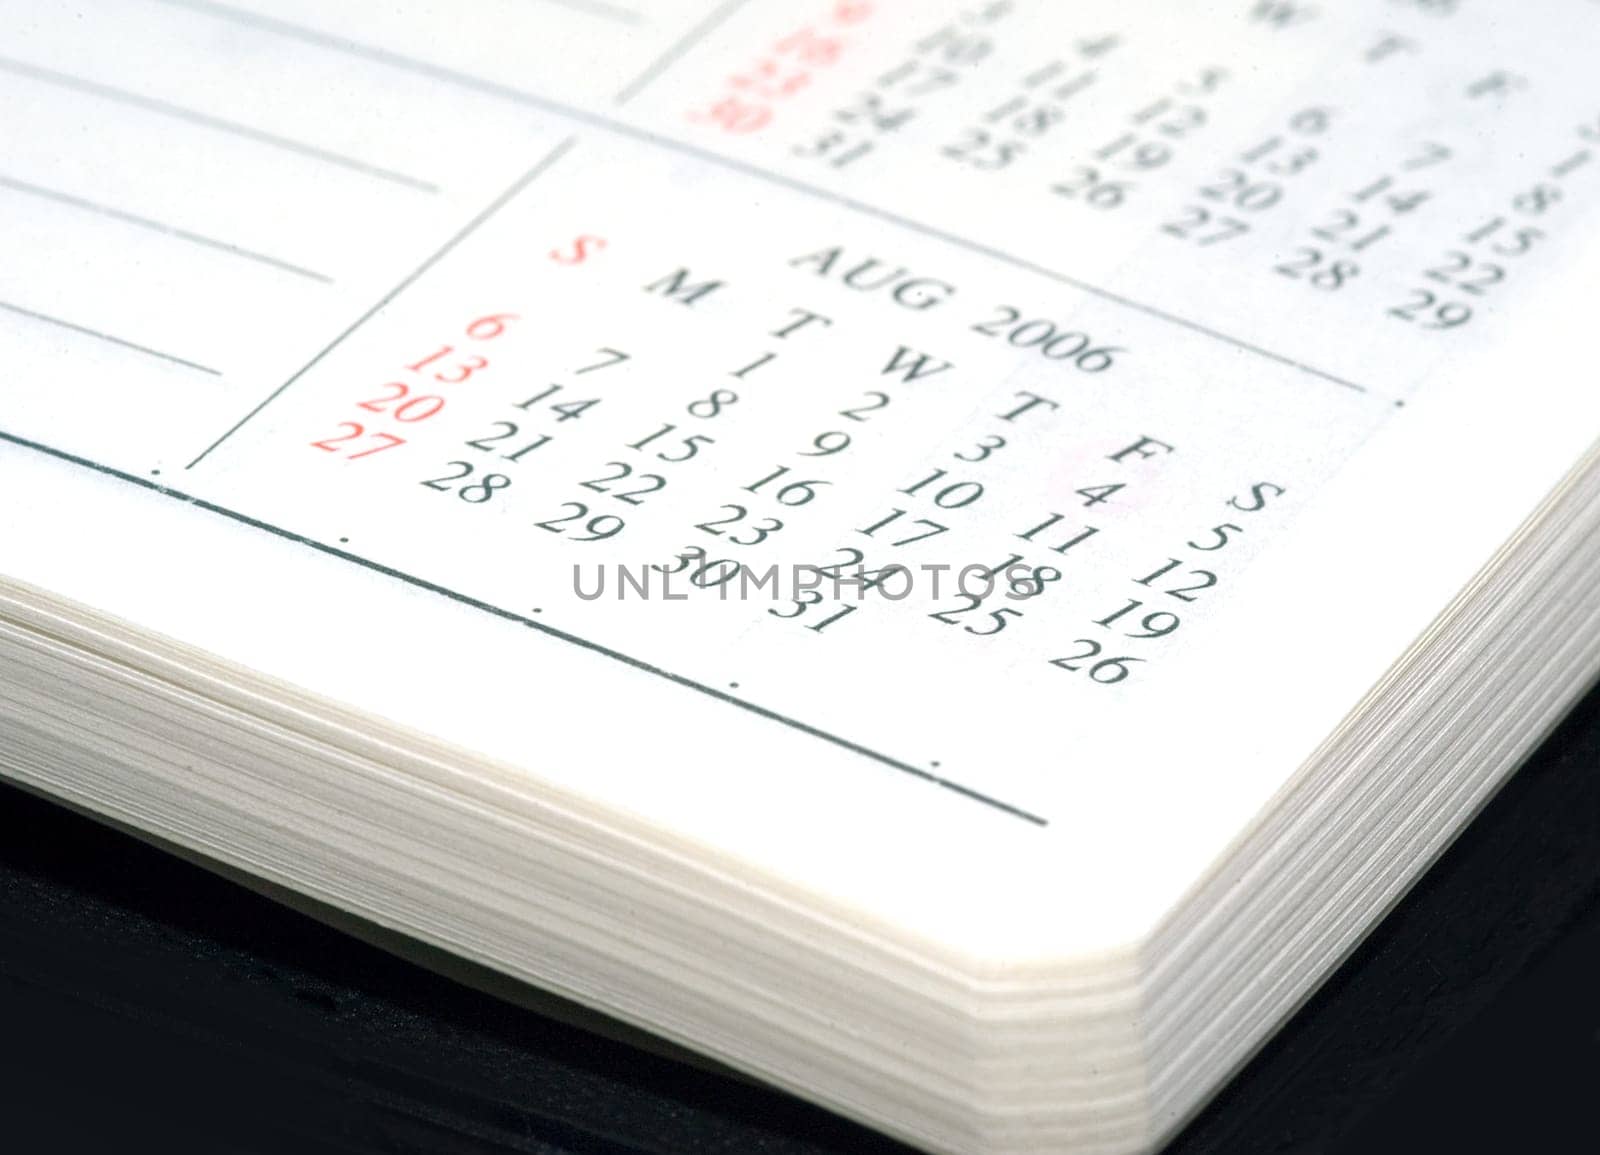 W T F
1
3 4 5 6 7 8
9 10 11 12 13 14 15
16 17 18 19 20 21 22
23 24 25 26 27 28 29
30 31
AUG 2006
S M T W T F S
1 2 3 4 5
6 7 8 9 10 11 12
13 14 15 16 17 18 19
20 21 22 23 24 25 26
27 28 29 30 31
UNLIMPHOTOS